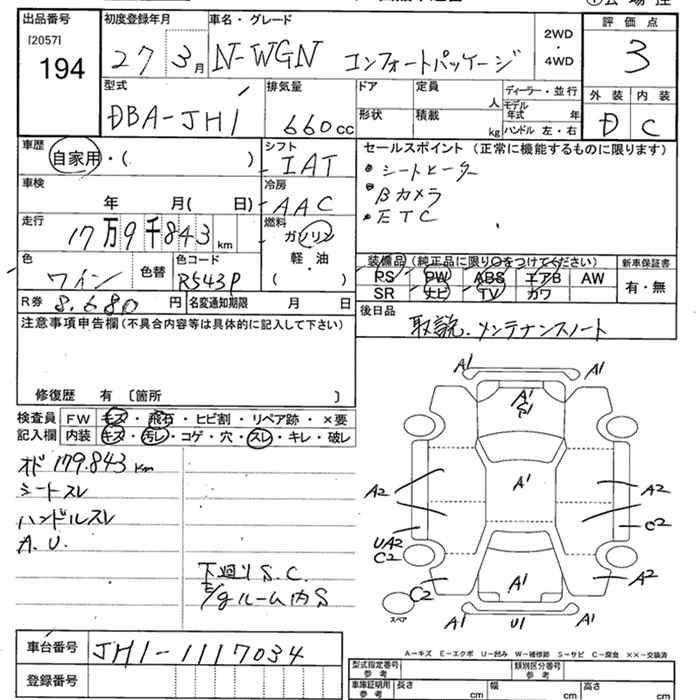 出品番号
[2057]
194
初度登録年月
27 3月
車名・グレード
N-WGN コンフォートパッケージ
2WD
・
4WD
評価点
3
外装 内装
D C
型式
DBA-JH1
排気量
660cc
ドア
形状
定員
人
積載
kg
ディーラー・並行
モデル
年式 年
ハンドル 左・右
車歴
自家用・( )
シフト
IAT
セールスポイント(正常に機能するものに限ります)
シートヒーター
Bカメラ
ETC
車検
年 月( 日)
冷房
AAC
走行
17万9千843km
燃料
ガソリン
軽・油
( )
色
ワイン
色替
色コード
R543P
装備品(純正品に限り○をつけてください)
PS PW ABS エアB AW
SR ナビ TV カワ
新車保証書
有・無
R券 8.680円
名変通知期限 月 日
後日品
取説.メンテナンスノート
注意事項申告欄(不具合内容等は具体的に記入して下さい)
修復歴 有 〔箇所 〕
検査員
記入欄
FW キズ・飛石・ヒビ割・リペア跡・×要
内装 キズ・汚レ・コゲ・穴・スレ・キレ・破レ
オド 179.843km
シートスレ
ハンドルスレ
A.U.
下廻りS.C.
E/gルーム内S
A1 A1
A1
S1
A1
A2 A2
UA2
C2
C2
C2 A2
A1
A1 U1 A1
スペア
A-キズ E-エクボ U-凹み W-補修跡 S-サビ C-腐食 ××-交換済
車台番号
JH1-1117034
登録番号
型式指定番号
参考
類別区分番号
参考
車庫証明用
参考
長さ cm
幅 cm
高さ cm